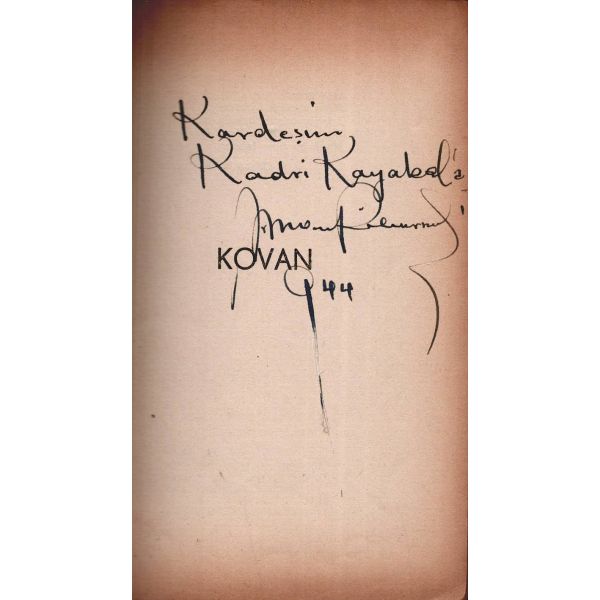 Kardeşim
Kadri Kayabal'a
KOVAN
944